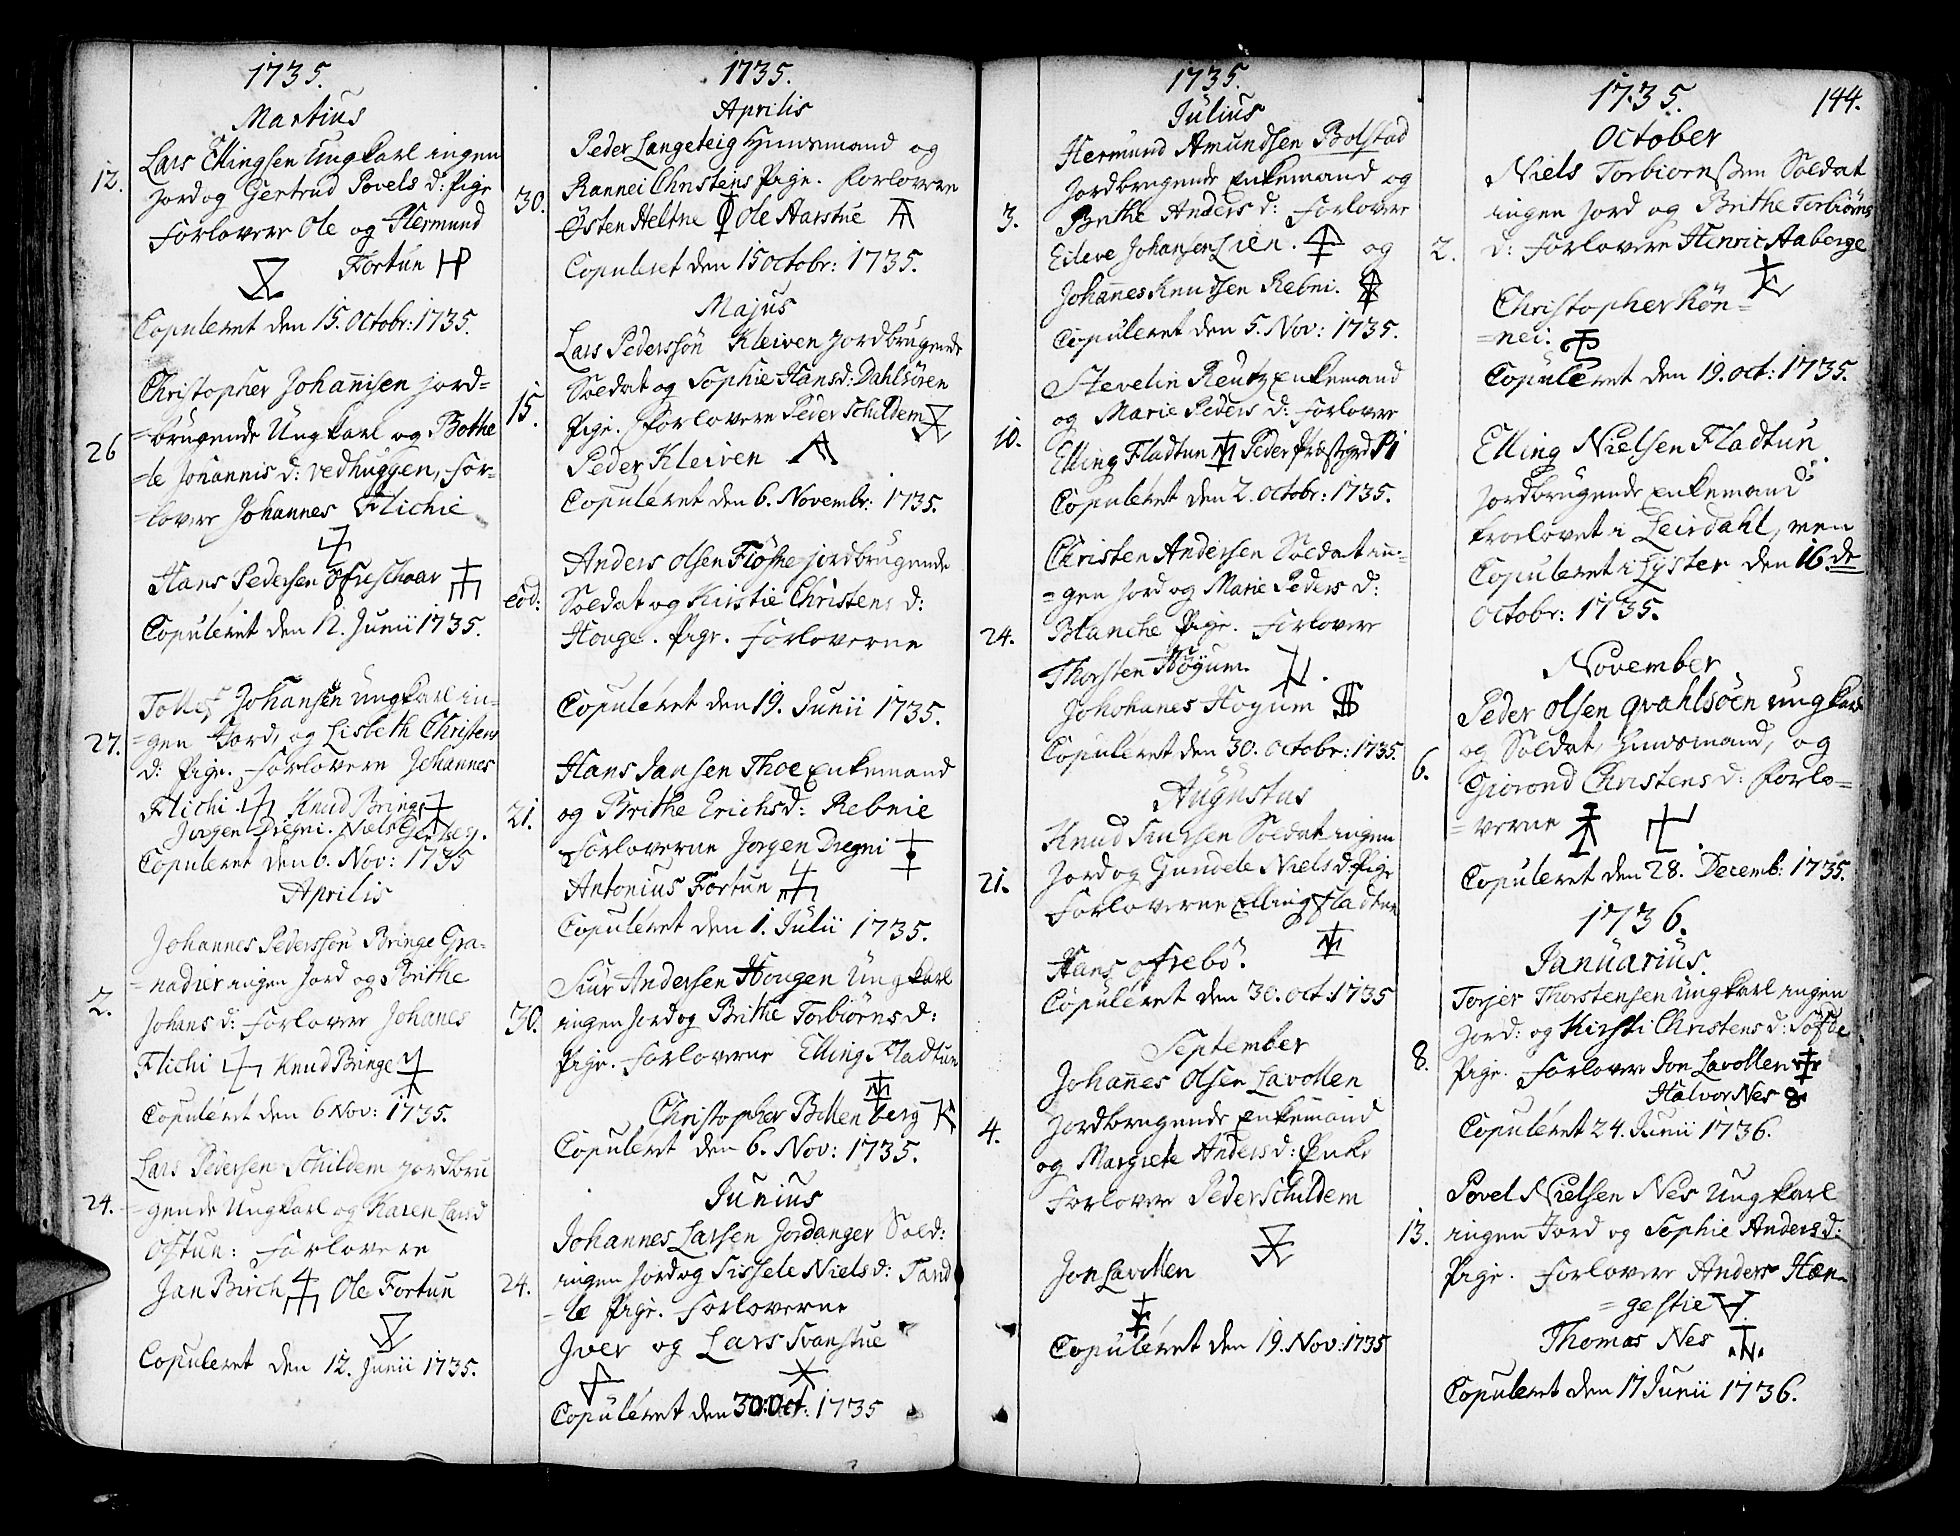 1735.
Martius
Lars Ellingsen Ungkarl ingen
12.
Jord og Gjertrud Povels d: Pige
Forlovere Ole og Hermund
Fortun
Copuleret den 15. Octobr: 1735.
Christopher Johannisen jord=
=brugende Ungkarl og Bothe
26
=le Johannis d: Vedhuggen, For-
=lovere Johannes Flichie
Hans Pedersen Øfreschaar
Copuleret den 12. Junii 1735.
Johansen Ungkarl in-
27.
=gen Jord, og Lisbeth Christens
d: Pige. Forlovere Johannes
Flichi. Knud Bringe
Jorgen Dregni. Niels
Copuleret den 6. Nov: 1735
Aprilis
Johannes Pederssøn Bringe Gra-
=nadier ingen Jord og Brithe
2.
Johans d: Forlovere Johanes
Flichi Knud Bringe
Copuleret den 6 Nov: 1735.
Lars Pedersen Schildem jordbru
24.
=gende Ungkarl og Karen Lars d
Ostun: Forlovere
Jan Birch Ole Fortun
Copuleret den 12. Junii 1735.
1735.
Aprilis
Peder Langeteig Huusmand og
30.
Rannei Christens Pige. Forlovere
Østen Heltne Ole Aarstue
Copuleret den 15 octobr: 1735.
Majus
Lars Pederssön Kleiven Jordbrugende
15.
Soldat og Sophie Hans d: Dahlsören
Pige. Forlovere Peder Schildem
Peder Kleiven
Copuleret den 6. Novembr: 1735.
Anders Olsen Fløthe jordbrugende
eod:
Soldat og Kirstie Christens d:
Houge. Pige. Forloverne
Copuleret den 19. Junii 1735.
Hans Jansen Thoe Enkemand
21.
og Brithe Erichs d: Rebnie
Forloverne Jorgen Dregni
Antonius Fortun
Copuleret den 1. Julii 1735.
Siur Andersen Hougen Ungkarl
30.
ingen Jord og Brithe Torbiørns d:
Pige. Forloverne Elling Fladtun
Christopher Bollenberg
Copuleret den 6. Nov: 1735.
Junius
Johannes Larsen Jordanger Sold:
24.
ingen Jord og Sissele Niels d: Tand
=le Pige. Forloverne
Iver og Lars Svanstue
Copuleret den 30 Oct: 1735
1735.
Julius
Hermund Amundsen Bolstad
Jordbrugende Enkemand og
3.
Brithe Anders d: Forlovere
Eileve Johansen Lien. og
Johannes Knudsen Rebni.
Copuleret den 5. Nov: 1735.
Stevelin Reutz Enkemand
og Marie Peders d: Forlovere
10.
Elling Fladtun Peder Præstgrd
Copuleret den 2. octobr: 1735.
Christen Andersen Soldat in-
=gen Jord og Marie Peders d:
24.
Blanche Pige. Forlovere
Thorsten Høyum.
Johohanes Hoyum
Copuleret den 30. octobr: 1735.
Augustus
Knud Siursen Soldat ingen
21.
Jord og Gundele Niels d. Pige
Forloverne Elling Fladtun
Hans Ofrebø.
Copuleret den 30. oct. 1735
September
Johannes Olsen Lavollen
4.
Jordbrugende Enkemand
og Margrete Anders d: Enke
Forlovere Peder Schildem
Jon Lavollen
Copuleret den 19. Nov: 1735
1735.
144.
October
Niels Torbiornssen Soldat
ingen Jord og Brithe Torbiørns
2.
d: Forlovere Henric Aaberge
Christopher Rön=
=nei.
Copuleret den 19. oct: 1735.
Elling Nielsen Fladtun
Jordbrugende Enkemand
trolovet i Leirdahl, men
Copuleret i Lyster den 16.de
Octobr: 1735.
November
Peder Olsen Qvahlsöen Ungkarl
og Soldat, Huusmand, og
6.
Giorond Christens d: Forlo=
=verne
Copuleret den 28. Decemb: 1735.
1736.
Januarius.
Torjer Thorstensen Ungkarl ingen
Jord: og Kirsti Christens d: Søfde
8.
Pige. Forlovere Jon Lavollen
Halvor Nes
Copuleret 24. Junii 1736.
Povel Nielsen Nes Ungkarl
13.
ingen Jord og Sophie Anders d:
Pige. Forlovere Anders Hæn=
=gestie
Thomas Nes
Copuleret den 17 Junii 1736.